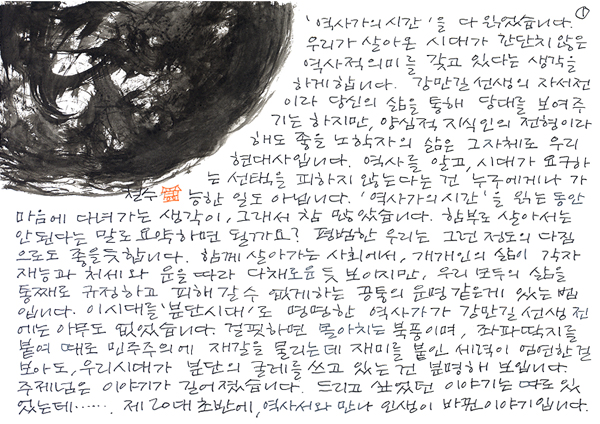 ①
'역사가의 시간'을 다 읽었습니다.
우리가 살아온 시대가 간단치 않은
역사적 의미를 갖고 있다는 생각을
하게 합니다. 강만길 선생의 자서전
이라 당신의 삶을 통해 당대를 보여주
기는 하지만, 양심적 지식인의 전형이라
해도 좋을 노학자의 삶은 그 자체로 우리
현대사입니다. 역사를 알고, 시대가 요구하
는 선택을 피하지 않는다는 건 누구에게나 가
철수 능한 일도 아닙니다. '역사가의 시간'을 읽는 동안
마음에 다녀가는 생각이, 그래서 참 많았습니다. 함부로 살아서는
안된다는 말로 요약하면 될까요? 평범한 우리는 그런 정도의 다짐
으로도 좋을 듯 합니다. 함께 살아가는 사회에서, 개개인의 삶이 각자
재능과 처세와 운을 따라 다채로운 듯 보이지만, 우리 모두의 삶을
통째로 규정하고 피해갈 수 없게 하는 공통의 운명 같은 게 있는 법
입니다. 이 시대를 '분단시대'로 명명한 역사가가 강만길 선생 전
에는 아무도 없었습니다. 걸핏하면 몰아치는 북풍이며, 좌파딱지를
붙여 때로 민주주의에 재갈을 물리는데 재미를 붙인 세력이 엄연한 걸
보아도, 우리시대가 분단의 굴레를 쓰고 있는 건 분명해 보입니다.
주제넘은 이야기가 길어졌습니다. 드리고 싶었던 이야기는 따로 있
었는데……. 제 20대 초반에, 역사서와 만나 인생이 바뀐 이야기입니다.